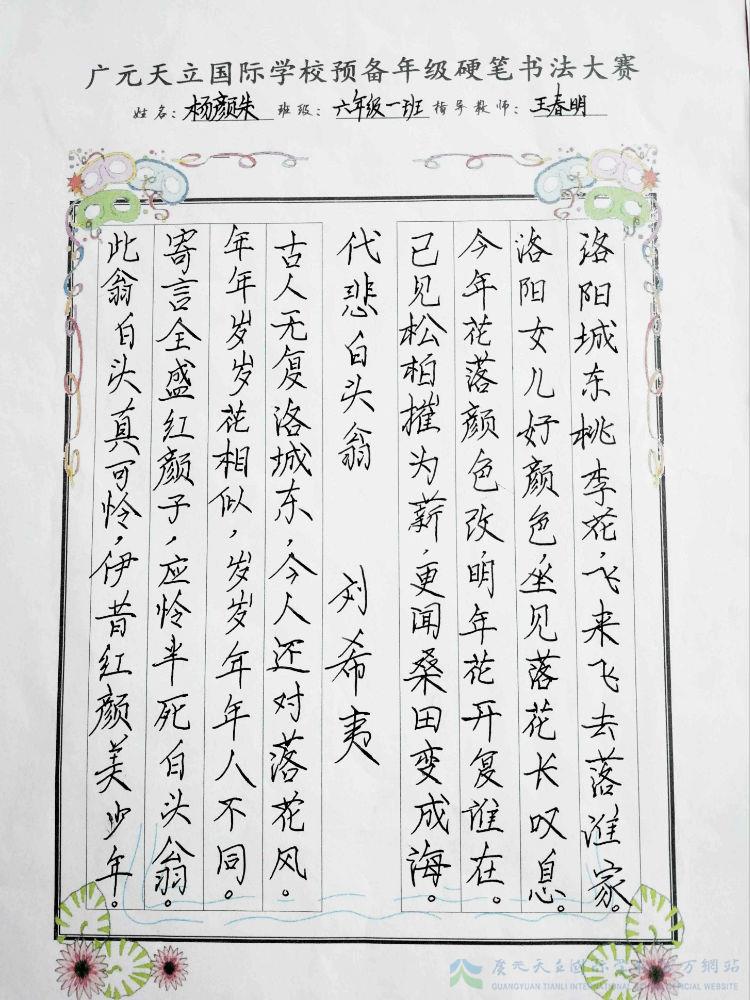 广元天立国际学校预备年级硬笔书法大赛
姓名：杨颜朱 班级：六年级一班 指导教师：王春明
洛阳城东桃李花，飞来飞去落谁家。
洛阳女儿好颜色，坐见落花长叹息。
今年花落颜色改，明年花开复谁在。
已见松柏摧为薪，更闻桑田变成海。
代悲白头翁 刘希夷
古人无复洛城东，今人还对落花风。
年年岁岁花相似，岁岁年年人不同。
寄言全盛红颜子，应怜半死白头翁。
此翁白头真可怜，伊昔红颜美少年。
廣元天立國際學校官方網站
GUANGYUAN TIANLI INTERNATIONAL SCHOOL OFFICIAL WEBSITE